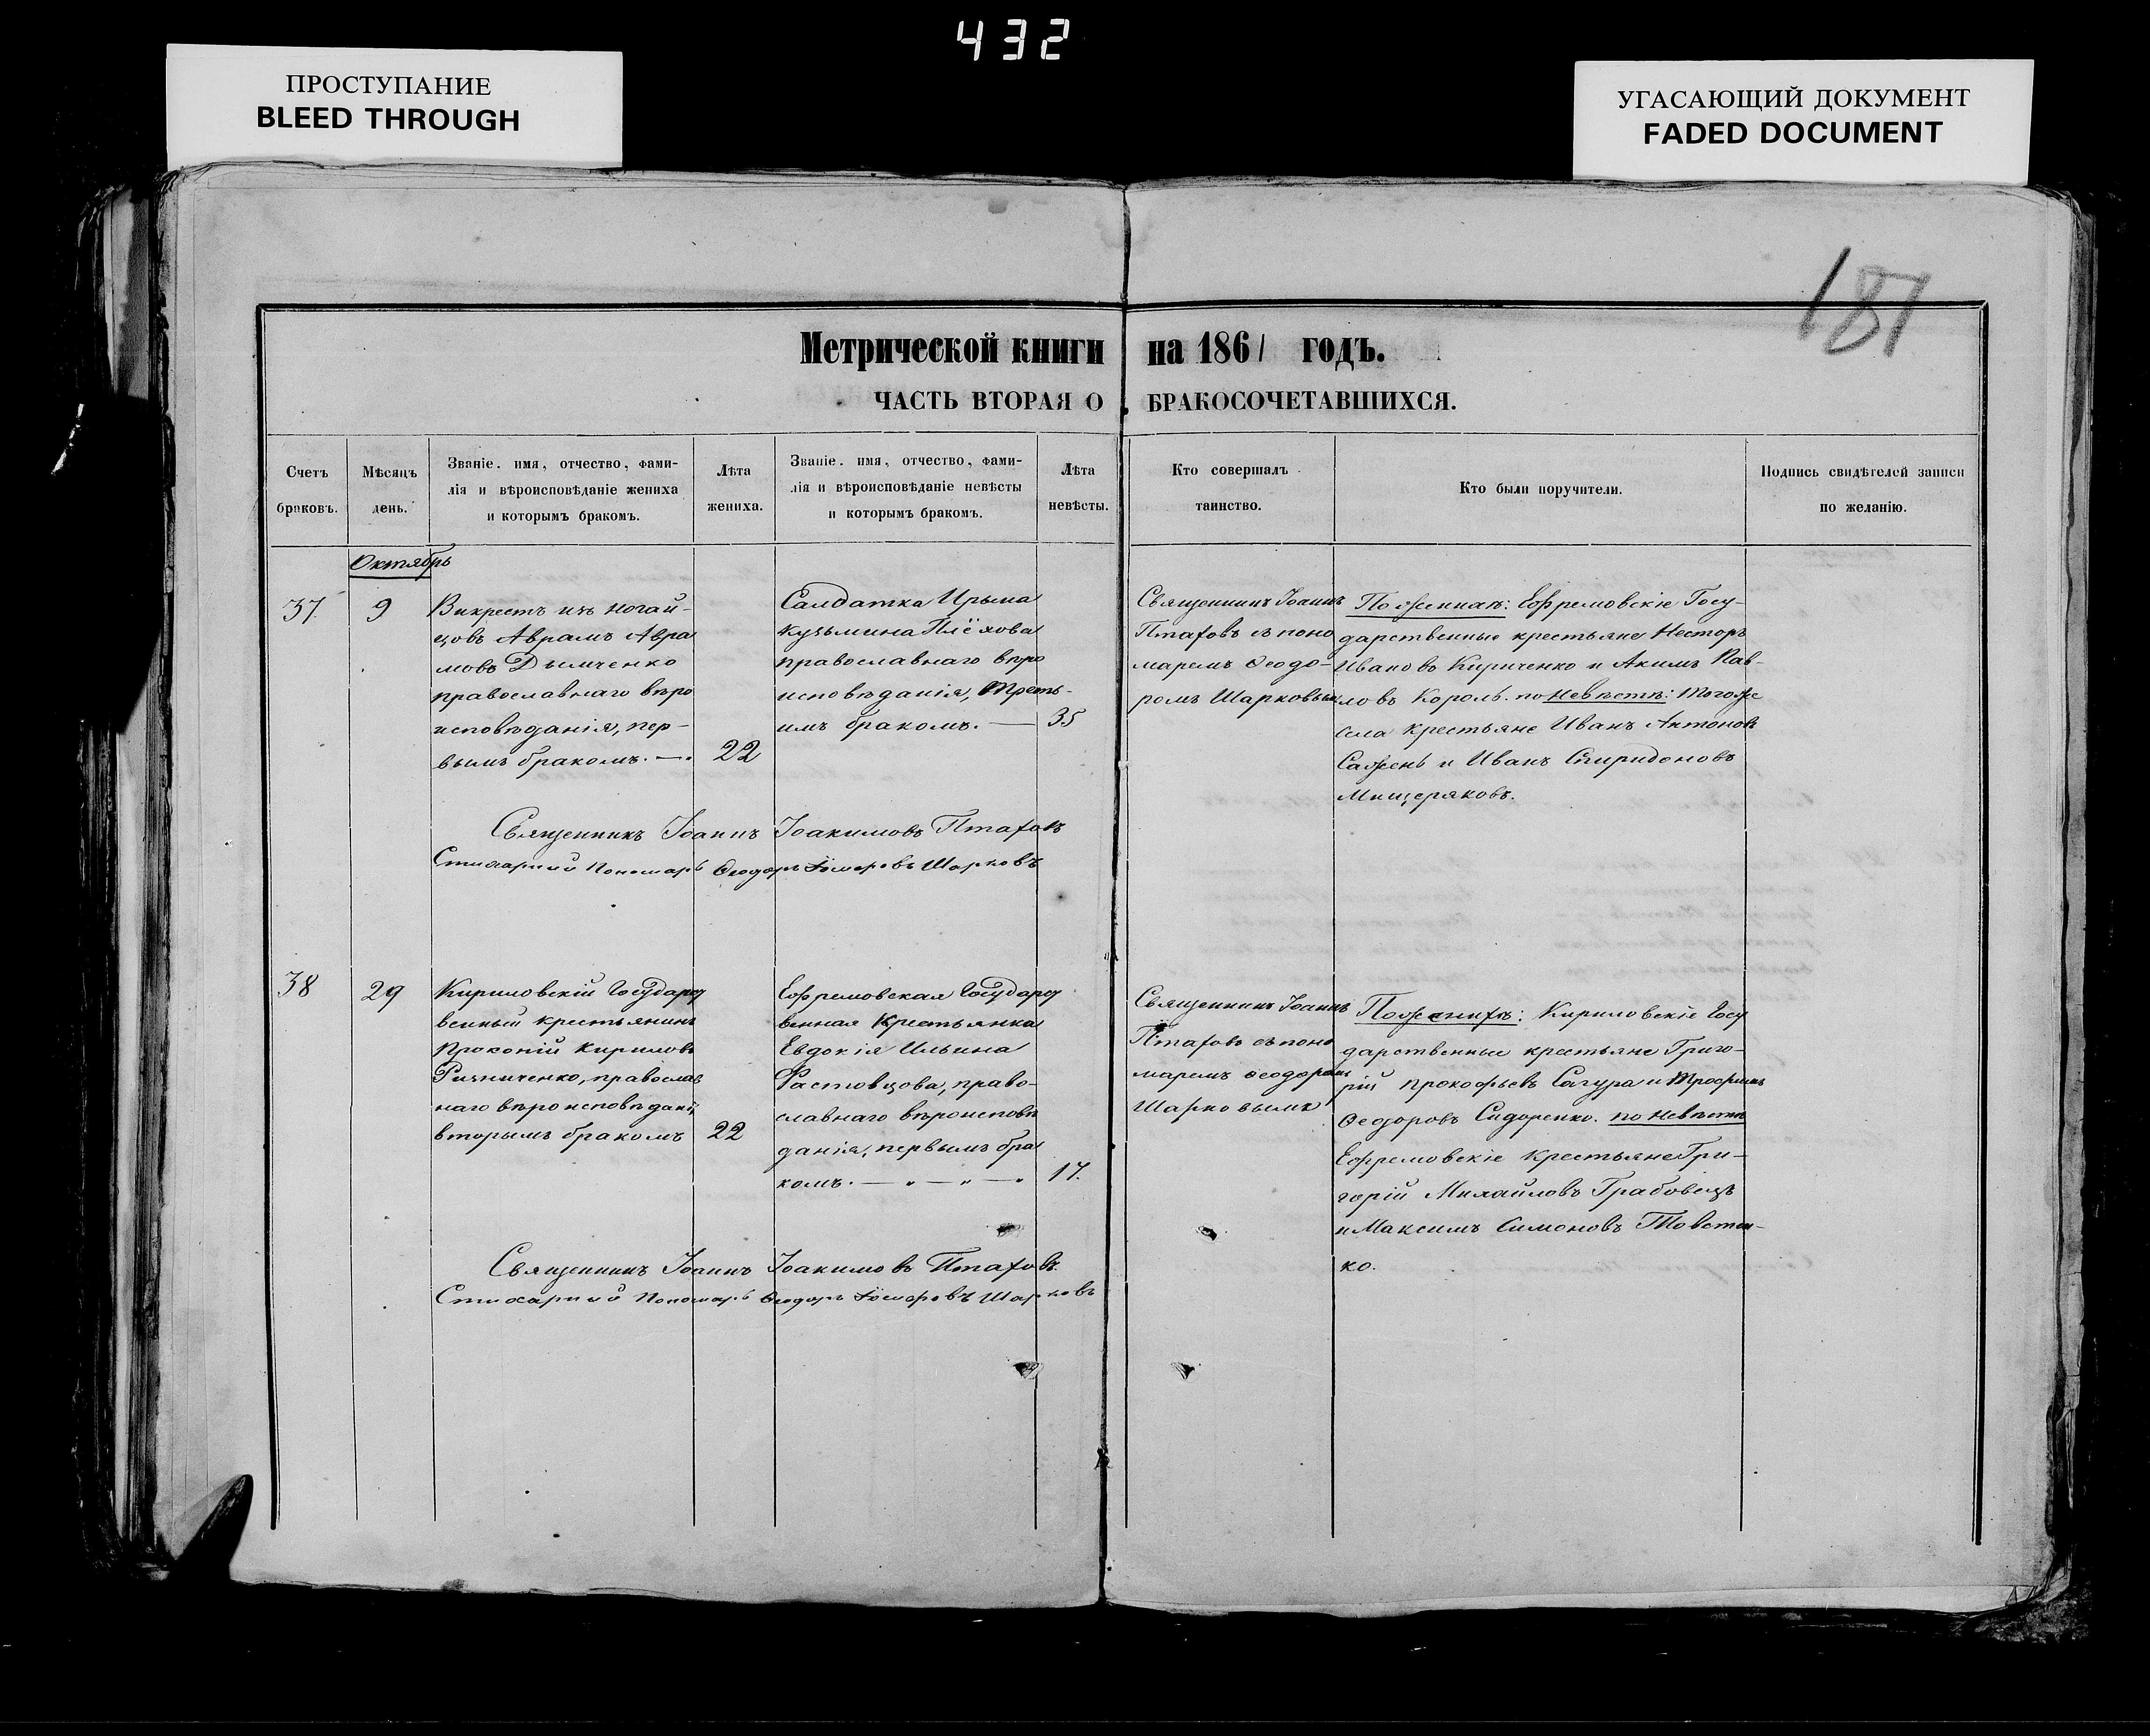 432
ПРОСТУПАНИЕ
BLEED THROUGH
УГАСАЮЩИЙ ДОКУМЕНТ
FADED DOCUMENT
181
Метрической книги на 1861 годъ.
ЧАСТЬ ВТОРАЯ О БРАКОСОЧЕТАВШИХСЯ.
Счетъ
браковъ.
Мѣсяцъ
день.
Званіе. имя, отчество, фами-
лія и вѣроисповѣданіе жениха
и которымъ бракомъ.
Лѣта
жениха.
Званіе. имя, отчество, фами-
лія и вѣроисповѣданіе невѣсты
и которымъ бракомъ.
Лѣта
невѣсты.
Кто совершалъ
таинство.
Кто были поручители.
Подпись свидѣтелей записи
по желанію.
Октябрь
37
9
Викрестъ изъ ногай-
цовъ Аврамъ Авра
мовъ Дымченко
православнаго вѣро
исповѣданія, пер-
вымъ бракомъ. —.
22
Салдатка Ирына
Кузьмина Плёхова
православнаго вѣро
исповѣданія, треть-
имъ бракомъ. —
35
Священникъ Іоаннъ
Птаховъ съ поно
маремъ Ѳеодо-
ромъ Шарковым
По женихѣ: Ефремовскіе Госу-
дарственные крестьяне Несторъ
Ивановъ Кириченко и Акимъ Пав-
ловъ Король. по невѣстѣ: тогоже
села крестьяне Иванъ Антоновъ
Сажень и Иванъ Спиридоновъ
Мищеряковъ.
Священникъ Іоаннъ Іоакимовъ Птаховъ
Стихарный Пономарь Ѳеодоръ Шарковъ
38
29
Кириловскій Государст
венный крестьянинъ
Прокопій Кириловъ
Ризниченко, православ
наго вѣроисповѣдані
вторымъ бракомъ
22
Ефремовская Государст
венная Крестьянка
Евдокія Ильина
Растовцова, право-
славнаго вѣроисповѣ
данія, первымъ бра
комъ. — „ — „ — „
17.
Священникъ Іоаннъ
Птаховъ съ поно
маремъ Ѳеодоромъ
Шарковымъ
По женихѣ: Кириловскіе Госу
дарственные крестьяне Григо-
рій Прокофьевъ Сагура и Трофимъ
Ѳеодоровъ Сидоренко. по невѣстѣ
Ефремовскіе крестьяне Гри-
горій Михайловъ Грабовецъ
и Максимъ Симоновъ Товстен-
ко.
Священникъ Іоаннъ Іоакимовъ Птаховъ.
Стихарный Пономарь Ѳеодоръ Шарковъ